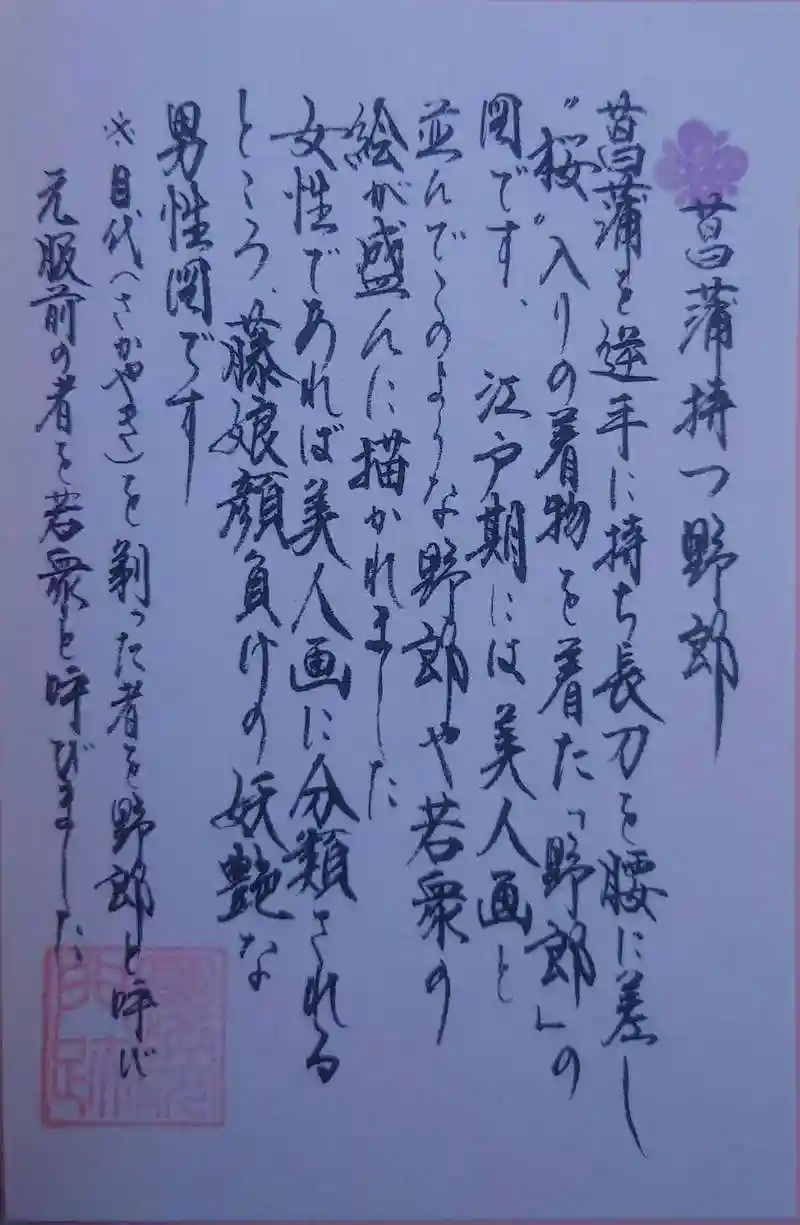 菖蒲持つ野郎
菖蒲を逆手に持ち長刀を腰に差し
"桜"入りの着物を着た「野郎」の
図です、江戸期には美人画と
並んでこのような野郎や若衆の
絵が盛んに描かれました
女性であれば美人画に分類される
ところ、藤娘顔負けの妖艶な
男性図です
※目代(さかやき)を剃った者を野郎と呼び
元服前の者を若衆と呼びました